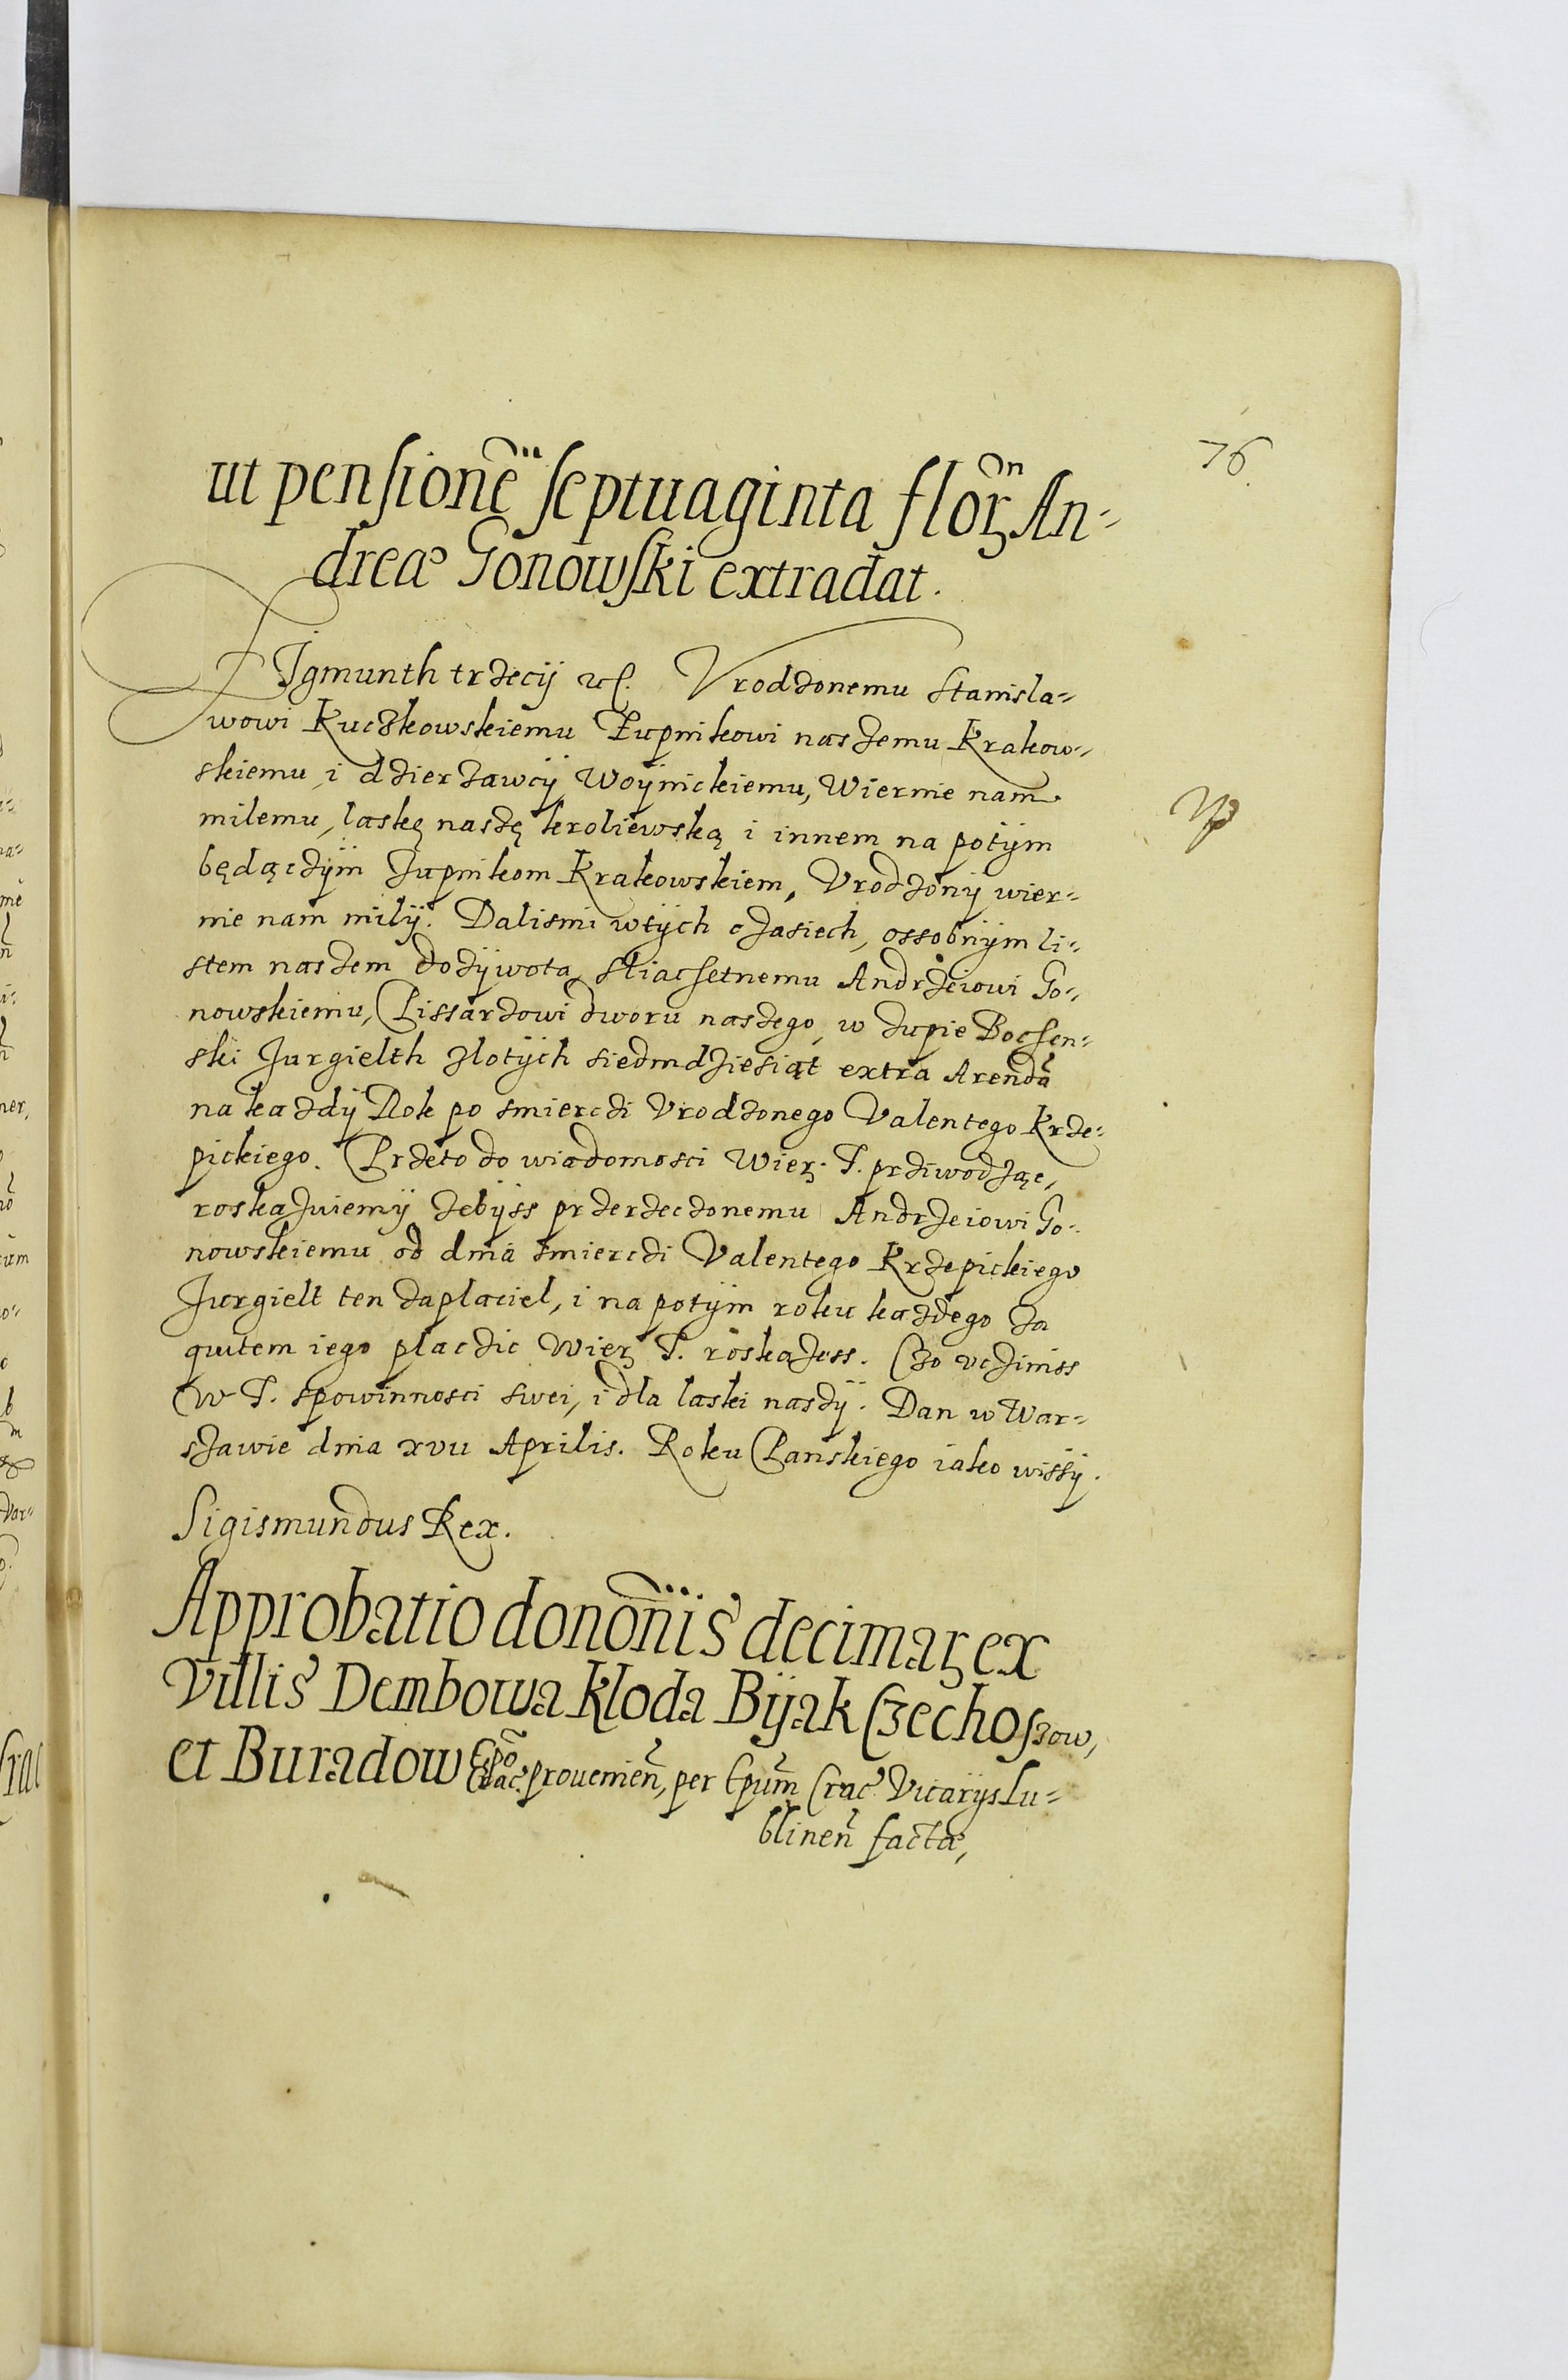 76.
ut pensionẽ septuaginta florꝝ An-
dreæ Gonowski extradat.
Zigmunth trzecij etc. Vrodzonemu Stanisla-
wowi Kuczkowskiemu Żupnikowi naszemu Krakow-
skiemu, i dzierzawcÿ Woÿnickiemu, Wiernie nam
milemu, laskę naszę kroliewską i innem na potÿm
będączÿm zupnikom Krakowskiem, Vrodzonÿ wier-
nie nam milÿ. Dalismi wtÿch czasiech, ossobnÿm li-
stem naszem dozÿwota, sliachetnemu Andrzeiowi Go-
nowskiemu, Pissarzowi dworu naszego, w zupie Bochen-
ski Jurgielth zlotÿch siedmdziesiąt extra Arendã
na kazdÿ Rok po smierczi Vrodzonego Valentego Krze-
pickiego. Przeto do wiadomosci Wierꝝ. T. prziwodząc,
roskazuiemÿ zebÿss przerzeczonemu Andrzeiowi Go-
nowskiemu od dnia smierczi Valentego Krzepickiego
Jurgielt ten zaplaciel, i na potÿm roku kazdego za
quitem iego placzic Wierꝝ T. roskazess. Czo vcziniss
W T. spowinnosci swei, i dla laski naszÿ. Dan w War-
szawie dnia xvii Aprilis. Roku Panskiego iako wissÿ.
Sigismundus Rex.
Approbatio donõnis decimaꝝ ex
Villis Dembowa Kloda Bÿak Czechoszow,
et Buradow Epõ Crac. prouenien̄, per Epum̃ Crac. Vicarÿs Lu-
blinen̄ factæ,